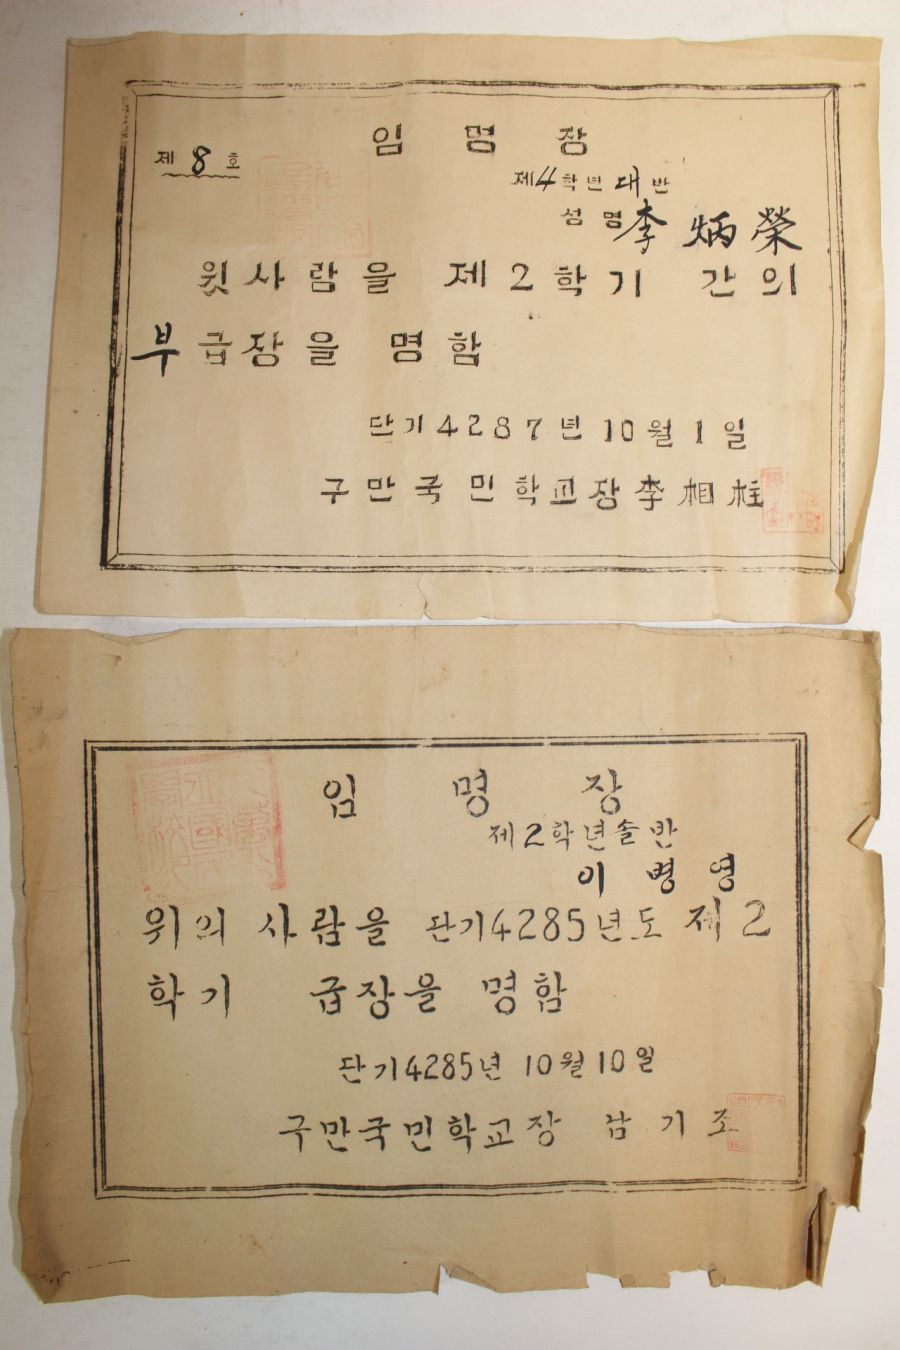 임 명 장
제 8 호
제4학년 대반
성명 李炳榮
윗사람을 제2학기 간의
부급장을 명함
단기 4287년 10월 1일
구만국민학교장 李相柱
임 명 장
제2학년솔반
이 병 영
위의 사람을 단기4285년도 제2
학기 급장을 명함
단기4285년 10월 10일
구만국민학교장 남기조